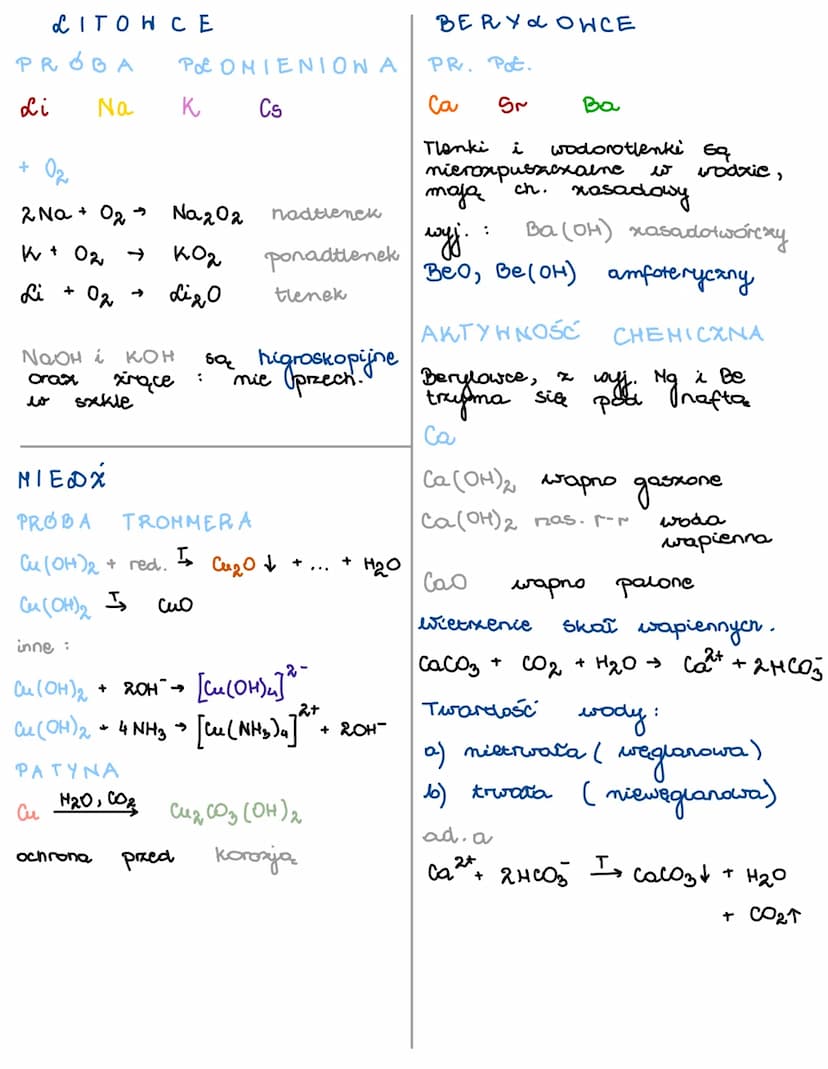 LITOWCE
PRÓBA PŁOMIENIOWA
Li Na K Cs
+ O₂
2Na + O₂ → Na₂O₂ nadtlenek
K + O₂ → KO₂ ponadtlenek
Li + O₂ → Li₂O tlenek
NaOH i KOH są higroskopijne
oraz żrące : nie przech.
w szkle
MIEDŹ
PRÓBA TROMMERA
Cu(OH)₂ + red. T→ Cu₂O ↓ + ... + H₂O
Cu(OH)₂ T→ CuO
inne :
Cu(OH)₂ + 2OH⁻ → [Cu(OH)₄]²⁻
Cu(OH)₂ + 4NH₃ → [Cu(NH₃)₄]²⁺ + 2OH⁻
PATYNA
Cu H₂O, CO₂→ Cu₂CO₃(OH)₂
ochrona przed korozją
BERYLOWCE
PR. PŁ.
Ca Sr Ba
Tlenki i wodorotlenki są
nierozpuszczalne w wodzie,
mają ch. zasadowy
wyj. : Ba(OH) zasadotwórczy
BeO, Be(OH) amfoteryczny
AKTYWNOŚĆ CHEMICZNA
Berylowce, z wyj. Mg i Be
trzyma się pod naftą
Ca
Ca(OH)₂ wapno gaszone
Ca(OH)₂ nas. r-r woda
wapienna
CaO wapno palone
Wietrzenie skał wapiennych.
CaCO₃ + CO₂ + H₂O → Ca²⁺ + 2HCO₃⁻
Twardość wody :
a) nietrwała (węglanowa)
b) trwała (niewęglanowa)
ad. a
Ca²⁺ + 2HCO₃⁻ T→ CaCO₃↓ + H₂O
+ CO₂↑